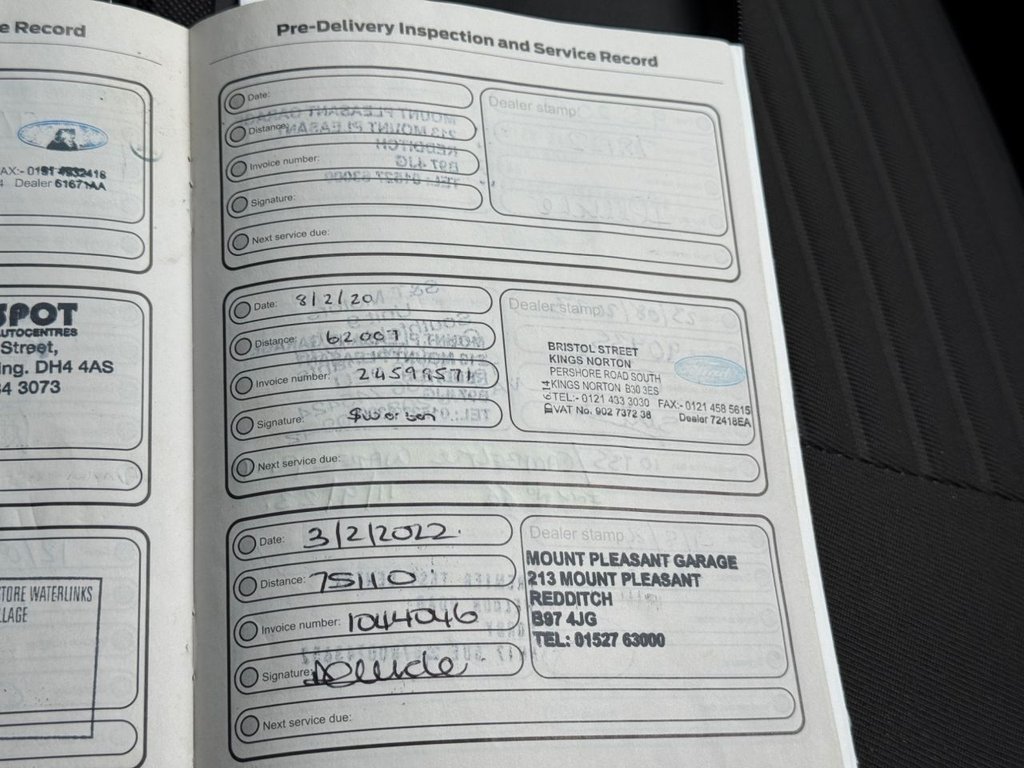 e Record
AX:- 0191 4932416
4 Dealer 61671AA
SPOT
AUTOCENTRES
Street,
ing. DH4 4AS
34 3073
TORE WATERLINKS
LLAGE
Pre-Delivery Inspection and Service Record
Date:
Distance:
Invoice number:
Signature:
Next service due:
Dealer stamp:
Date: 8/2/20
Distance: 62007
Invoice number: 24598571
Signature:
Next service due:
Dealer stamp:
BRISTOL STREET
KINGS NORTON
PERSHORE ROAD SOUTH
KINGS NORTON B30 3ES
TEL:- 0121 433 3030 FAX:- 0121 458 5615
VAT No. 902 7372 38 Dealer 72418EA
Ford
Date: 3/2/2022
Distance: 75110
Invoice number: 1044046
Signature:
Next service due:
Dealer stamp:
MOUNT PLEASANT GARAGE
213 MOUNT PLEASANT
REDDITCH
B97 4JG
TEL: 01527 63000